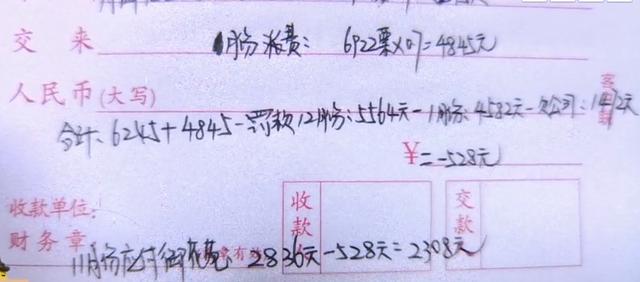 交来 1月份派费: 6922票×0.7=4845元
人民币(大写)
合计: 6245+4845-罚款12月份:5564元-1月份:4582元-欠公司:1472元
¥=-528元
收款单位:
财务章 收款 交款
11月份应付 2836元-528元=2308元